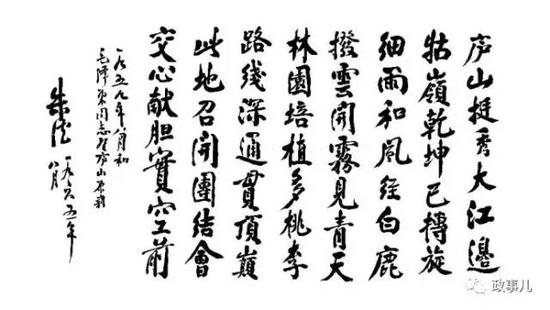 庐山挺秀大江邊
牯嶺乾坤已轉旋
細雨和風經白鹿
撥雲開霧見青天
林園培植多桃李
路綫深通貫頂巔
此地召開團結會
交心献胆實空前
一九五九年八月和
毛澤東同志登庐山原韵
朱德
一九六五年
八月
政事儿